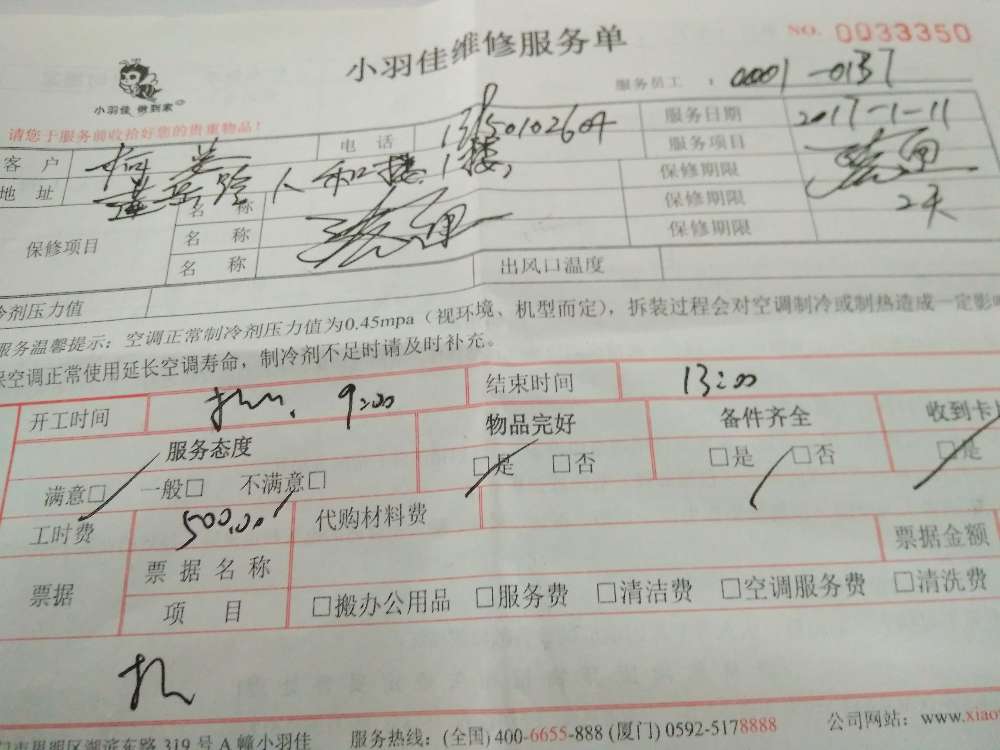 小羽佳维修服务单
NO. 0033350
小羽佳 做到家
服务员工 : 0001-0137
请您于服务前收拾好您的贵重物品!
客户
电话
服务日期 2017-1-11
地址 人和楼1楼
服务项目
保修项目
名称
保修期限
名称
保修期限 2天
名称
保修期限
冷剂压力值
出风口温度
服务温馨提示:空调正常制冷剂压力值为0.45mpa(视环境、机型而定),拆装过程会对空调制冷或制热造成一定影
保空调正常使用延长空调寿命,制冷剂不足时请及时补充。
开工时间 9:00
结束时间 13:00
服务态度 物品完好 备件齐全 收到卡
满意□ 一般□ 不满意□ □是 □否 □是 □否 □是
工时费 500.00 代购材料费
票据 票据名称 票据金额
项目 □搬办公用品 □服务费 □清洁费 □空调服务费 □清洗费
门市思明区湖滨东路319号A幢小羽佳 服务热线:(全国)400-6655-888 (厦门) 0592-5178888 公司网站:www.xiao